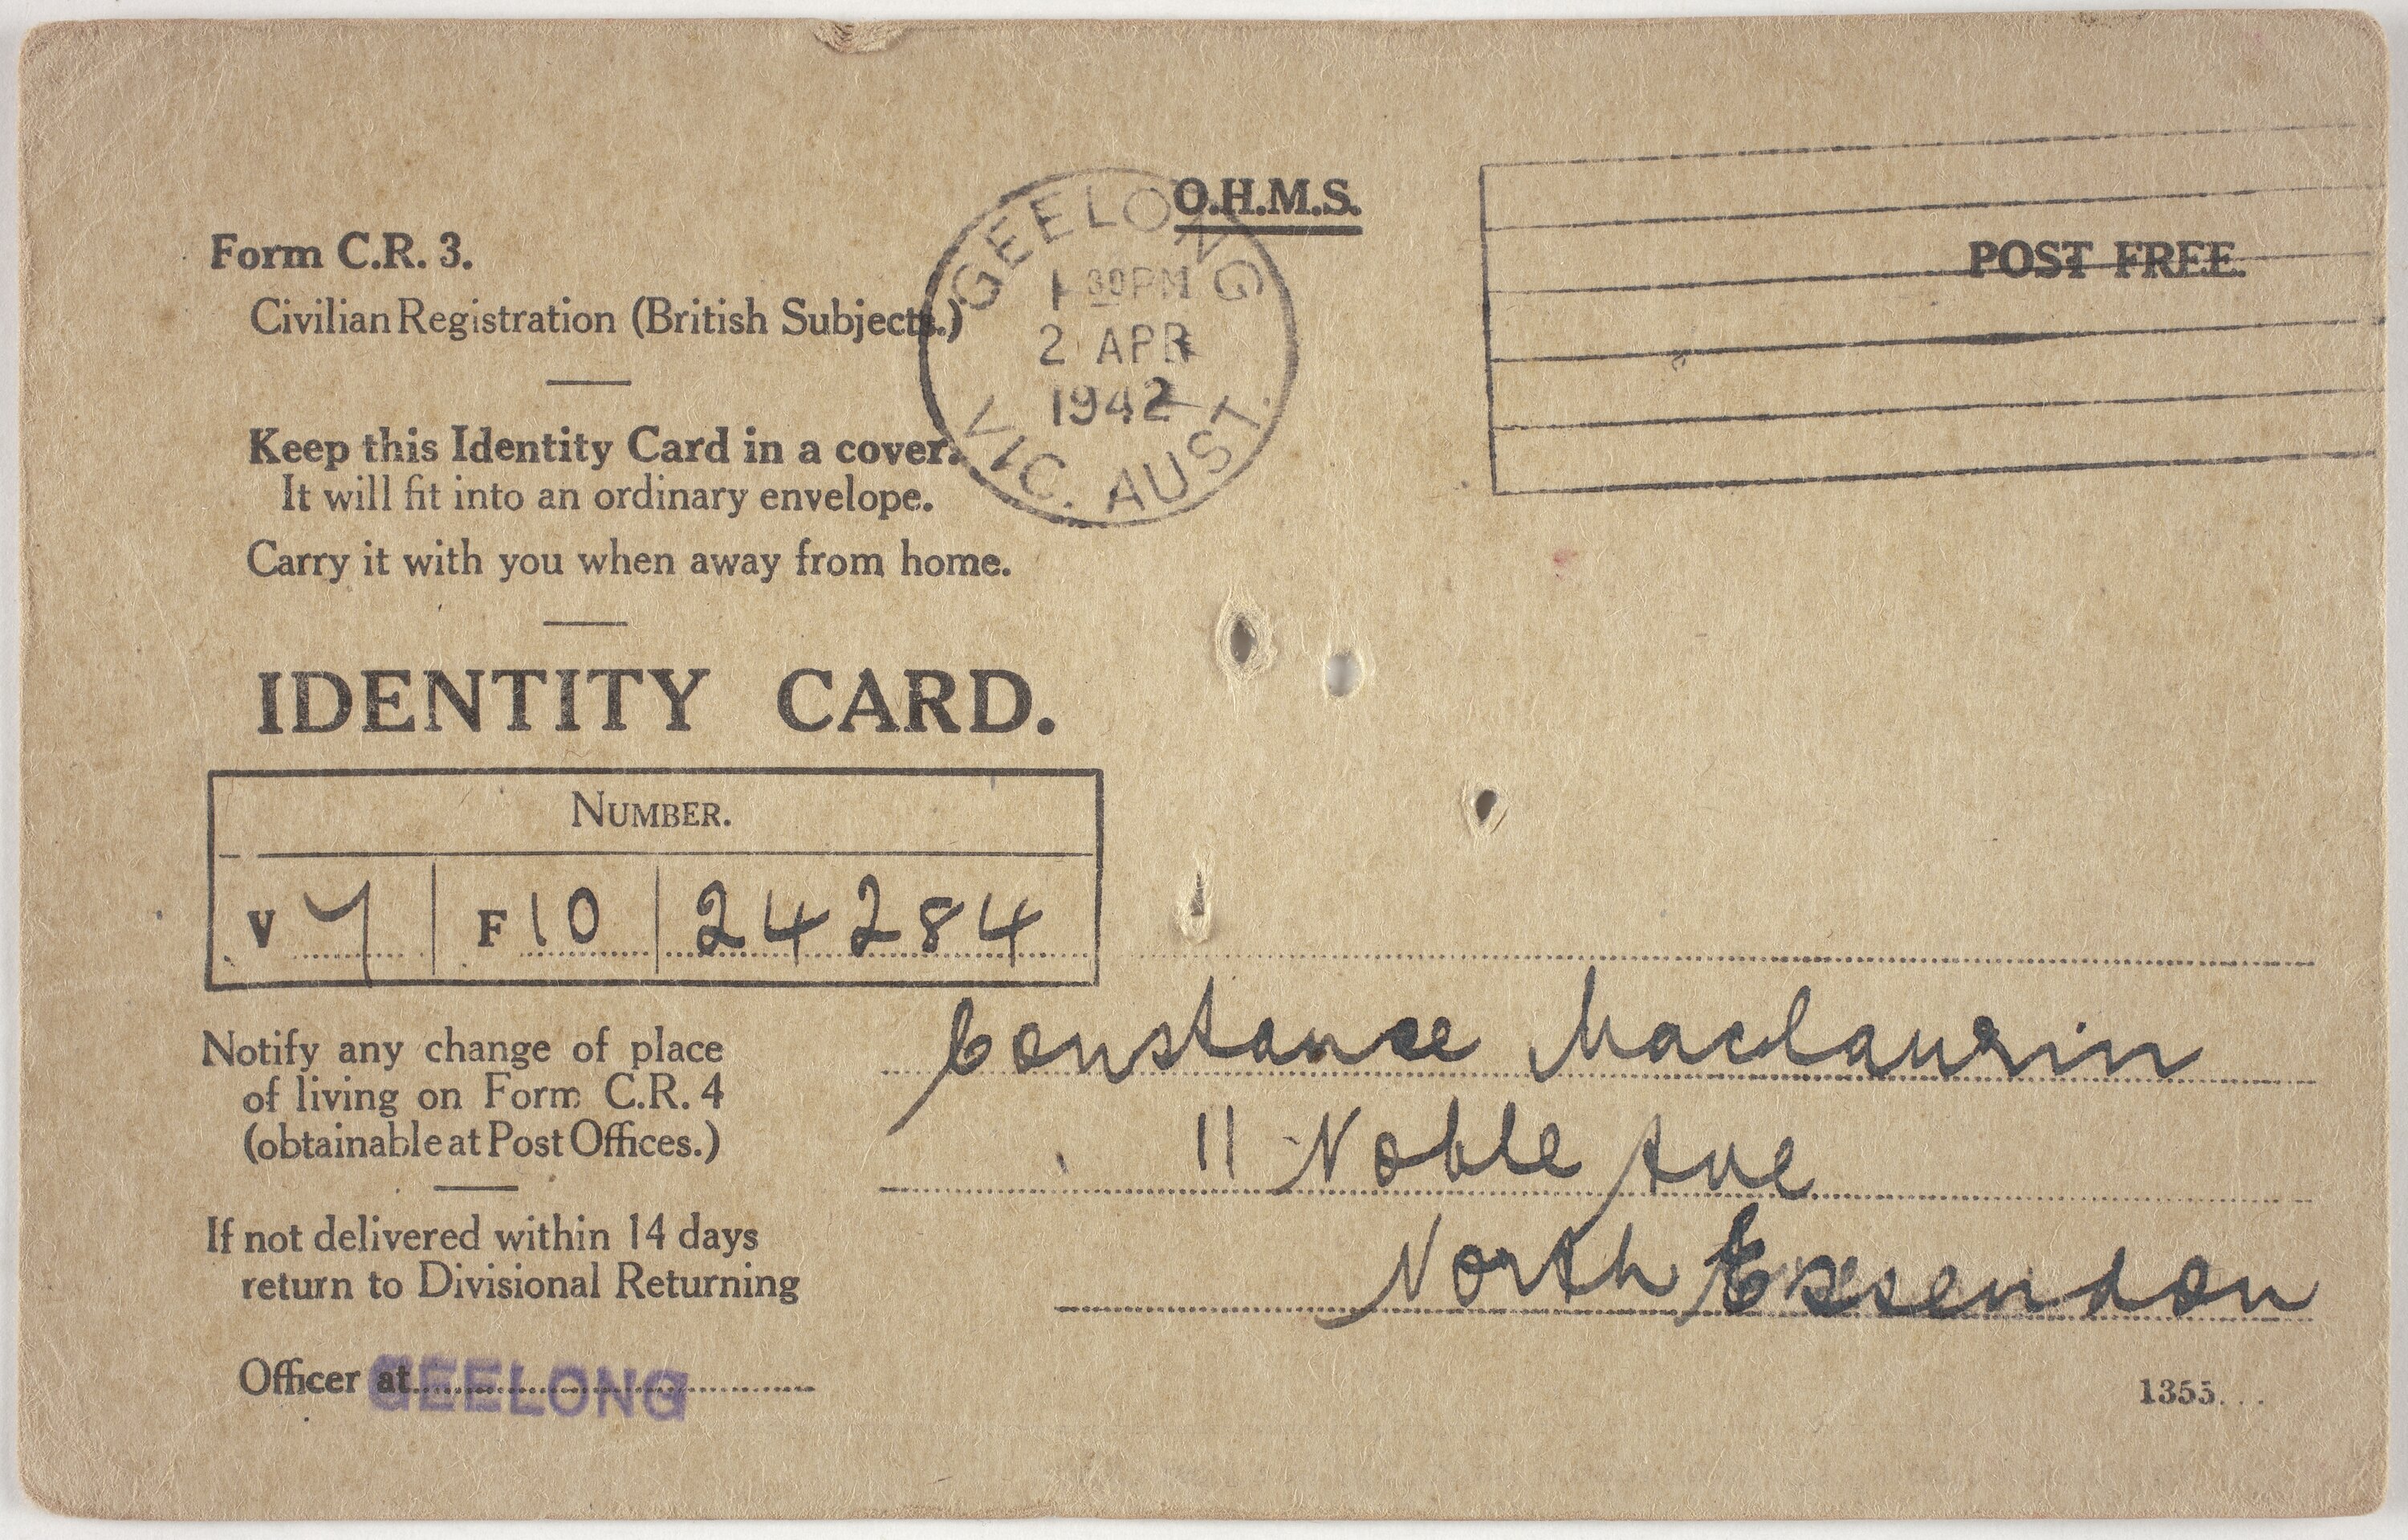 O.H.M.S.
POST FREE.
GEELONG
1 30PM
2 APR
1942
VIC. AUST.
Form C.R. 3.
Civilian Registration (British Subjects.)
Keep this Identity Card in a cover.
It will fit into an ordinary envelope.
Carry it with you when away from home.
IDENTITY CARD.
NUMBER.
V 7 F 10 24284
Notify any change of place
of living on Form C.R. 4
(obtainable at Post Offices.)
If not delivered within 14 days
return to Divisional Returning
Officer at GEELONG
Constance Maclaurin
11 Noble Ave
North Essendon
1355...